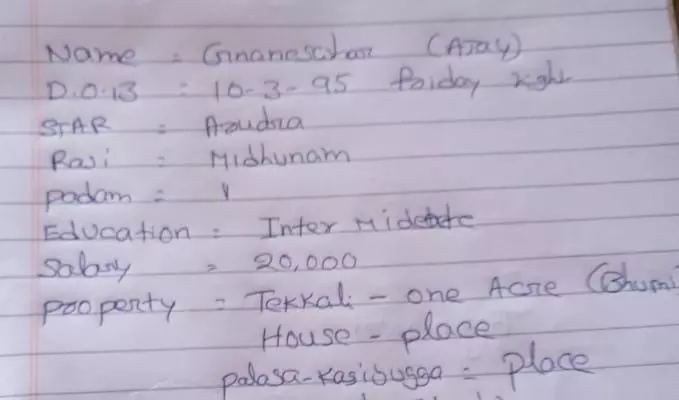 Name : Gnaneschar (Ajay)
D.O.B : 10-3-95 Friday night
STAR : Arudra
Rasi : Midhunam
padam = 4
Education : Inter Midete
Salary = 20,000
Property = Tekkali - one Acre (Bhumi
House - place
palasa-kasibugga = place